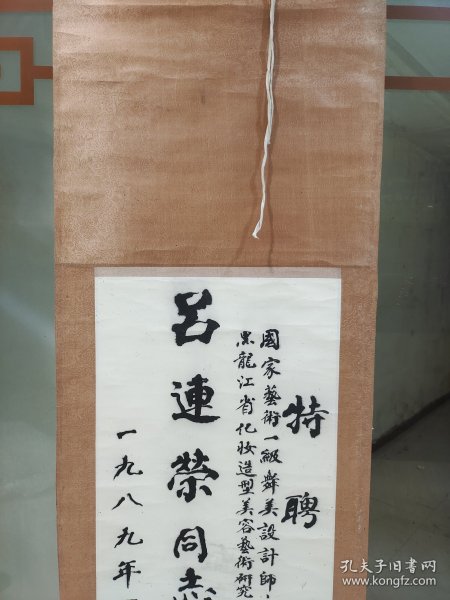 特聘
國家藝術一級舞美設計師
黑龍江省化妝造型美容藝術研究
呂連榮同志
一九八九年
孔夫子旧书网
www.kongfz.com